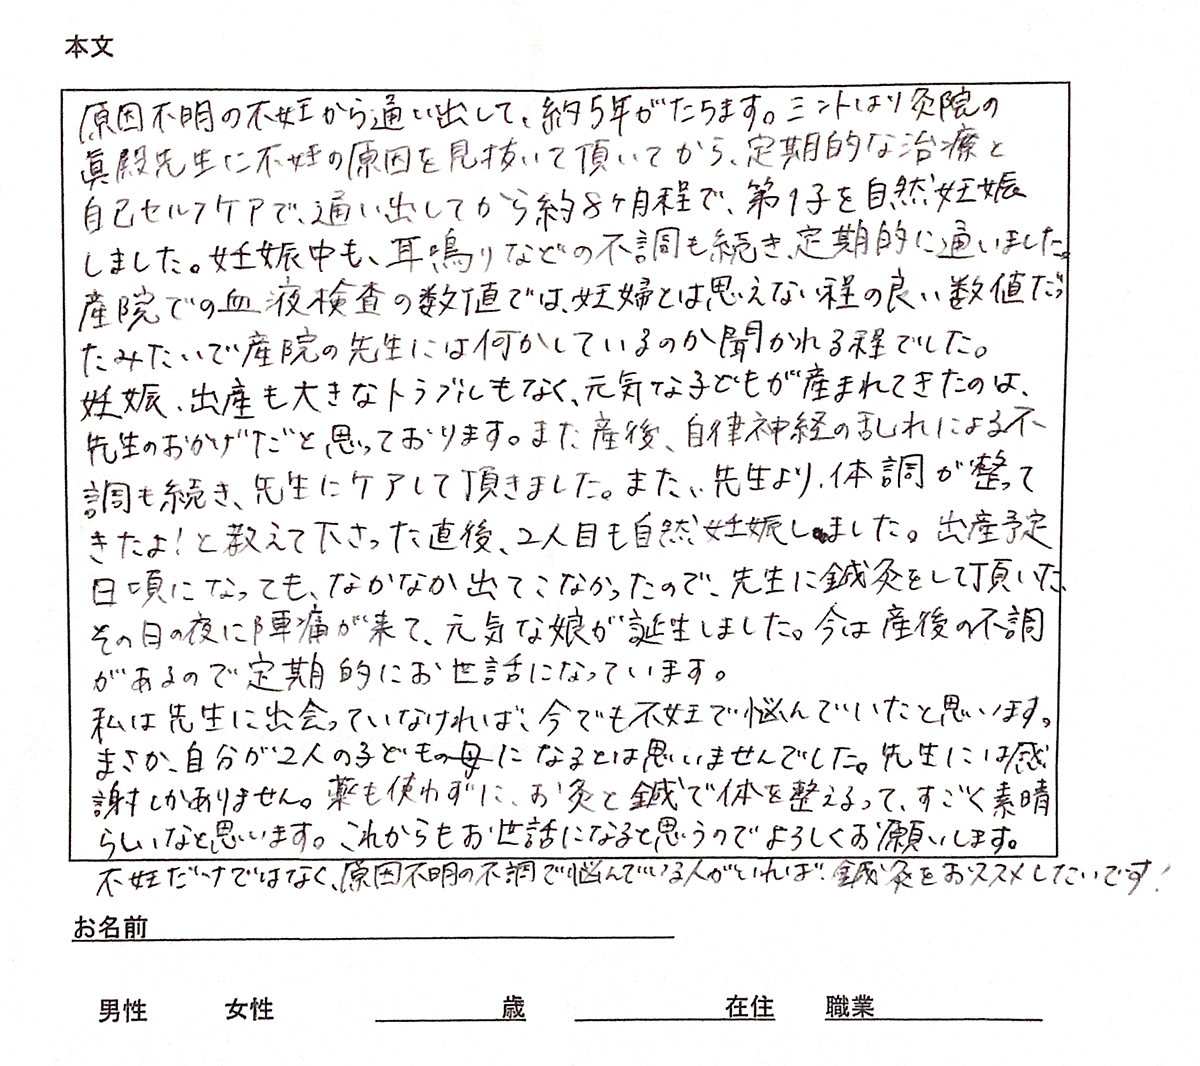 本文
原因不明の不妊から通い出して、約5年がたちます。ミントはり灸院の
眞殿先生に不妊の原因を見抜いて頂いてから、定期的な治療と
自己セルフケアで、通い出してから約8ヶ月程で、第1子を自然妊娠
しました。妊娠中も、耳鳴りなどの不調も続き、定期的に通いました。
産院での血液検査の数値では、妊婦とは思えない程の良い数値だっ
たみたいで産院の先生には何かしているのか聞かれる程でした。
妊娠、出産も大きなトラブルもなく、元気な子どもが産まれてきたのは、
先生のおかげだと思っております。また産後、自律神経の乱れによる不
調も続き、先生にケアして頂きました。また、先生より、体調が整って
きたよ!と教えて下さった直後、2人目も自然妊娠しました。出産予定
日頃になっても、なかなか出てこなかったので、先生に鍼灸をして頂いた、
その日の夜に陣痛が来て、元気な娘が誕生しました。今は産後の不調
があるので定期的にお世話になっています。
私は先生に出会っていなければ、今でも不妊で悩んでいたと思います。
まさか、自分が2人の子どもの母になるとは思いませんでした。先生には感
謝しかありません。薬も使わずに、お灸と鍼で体を整えるって、すごく素晴
らしいなと思います。これからもお世話になると思うのでよろしくお願いします。
不妊だけではなく、原因不明の不調で悩んでいる人がいれば、鍼灸をおススメしたいです!
お名前
男性 女性 歳 在住 職業